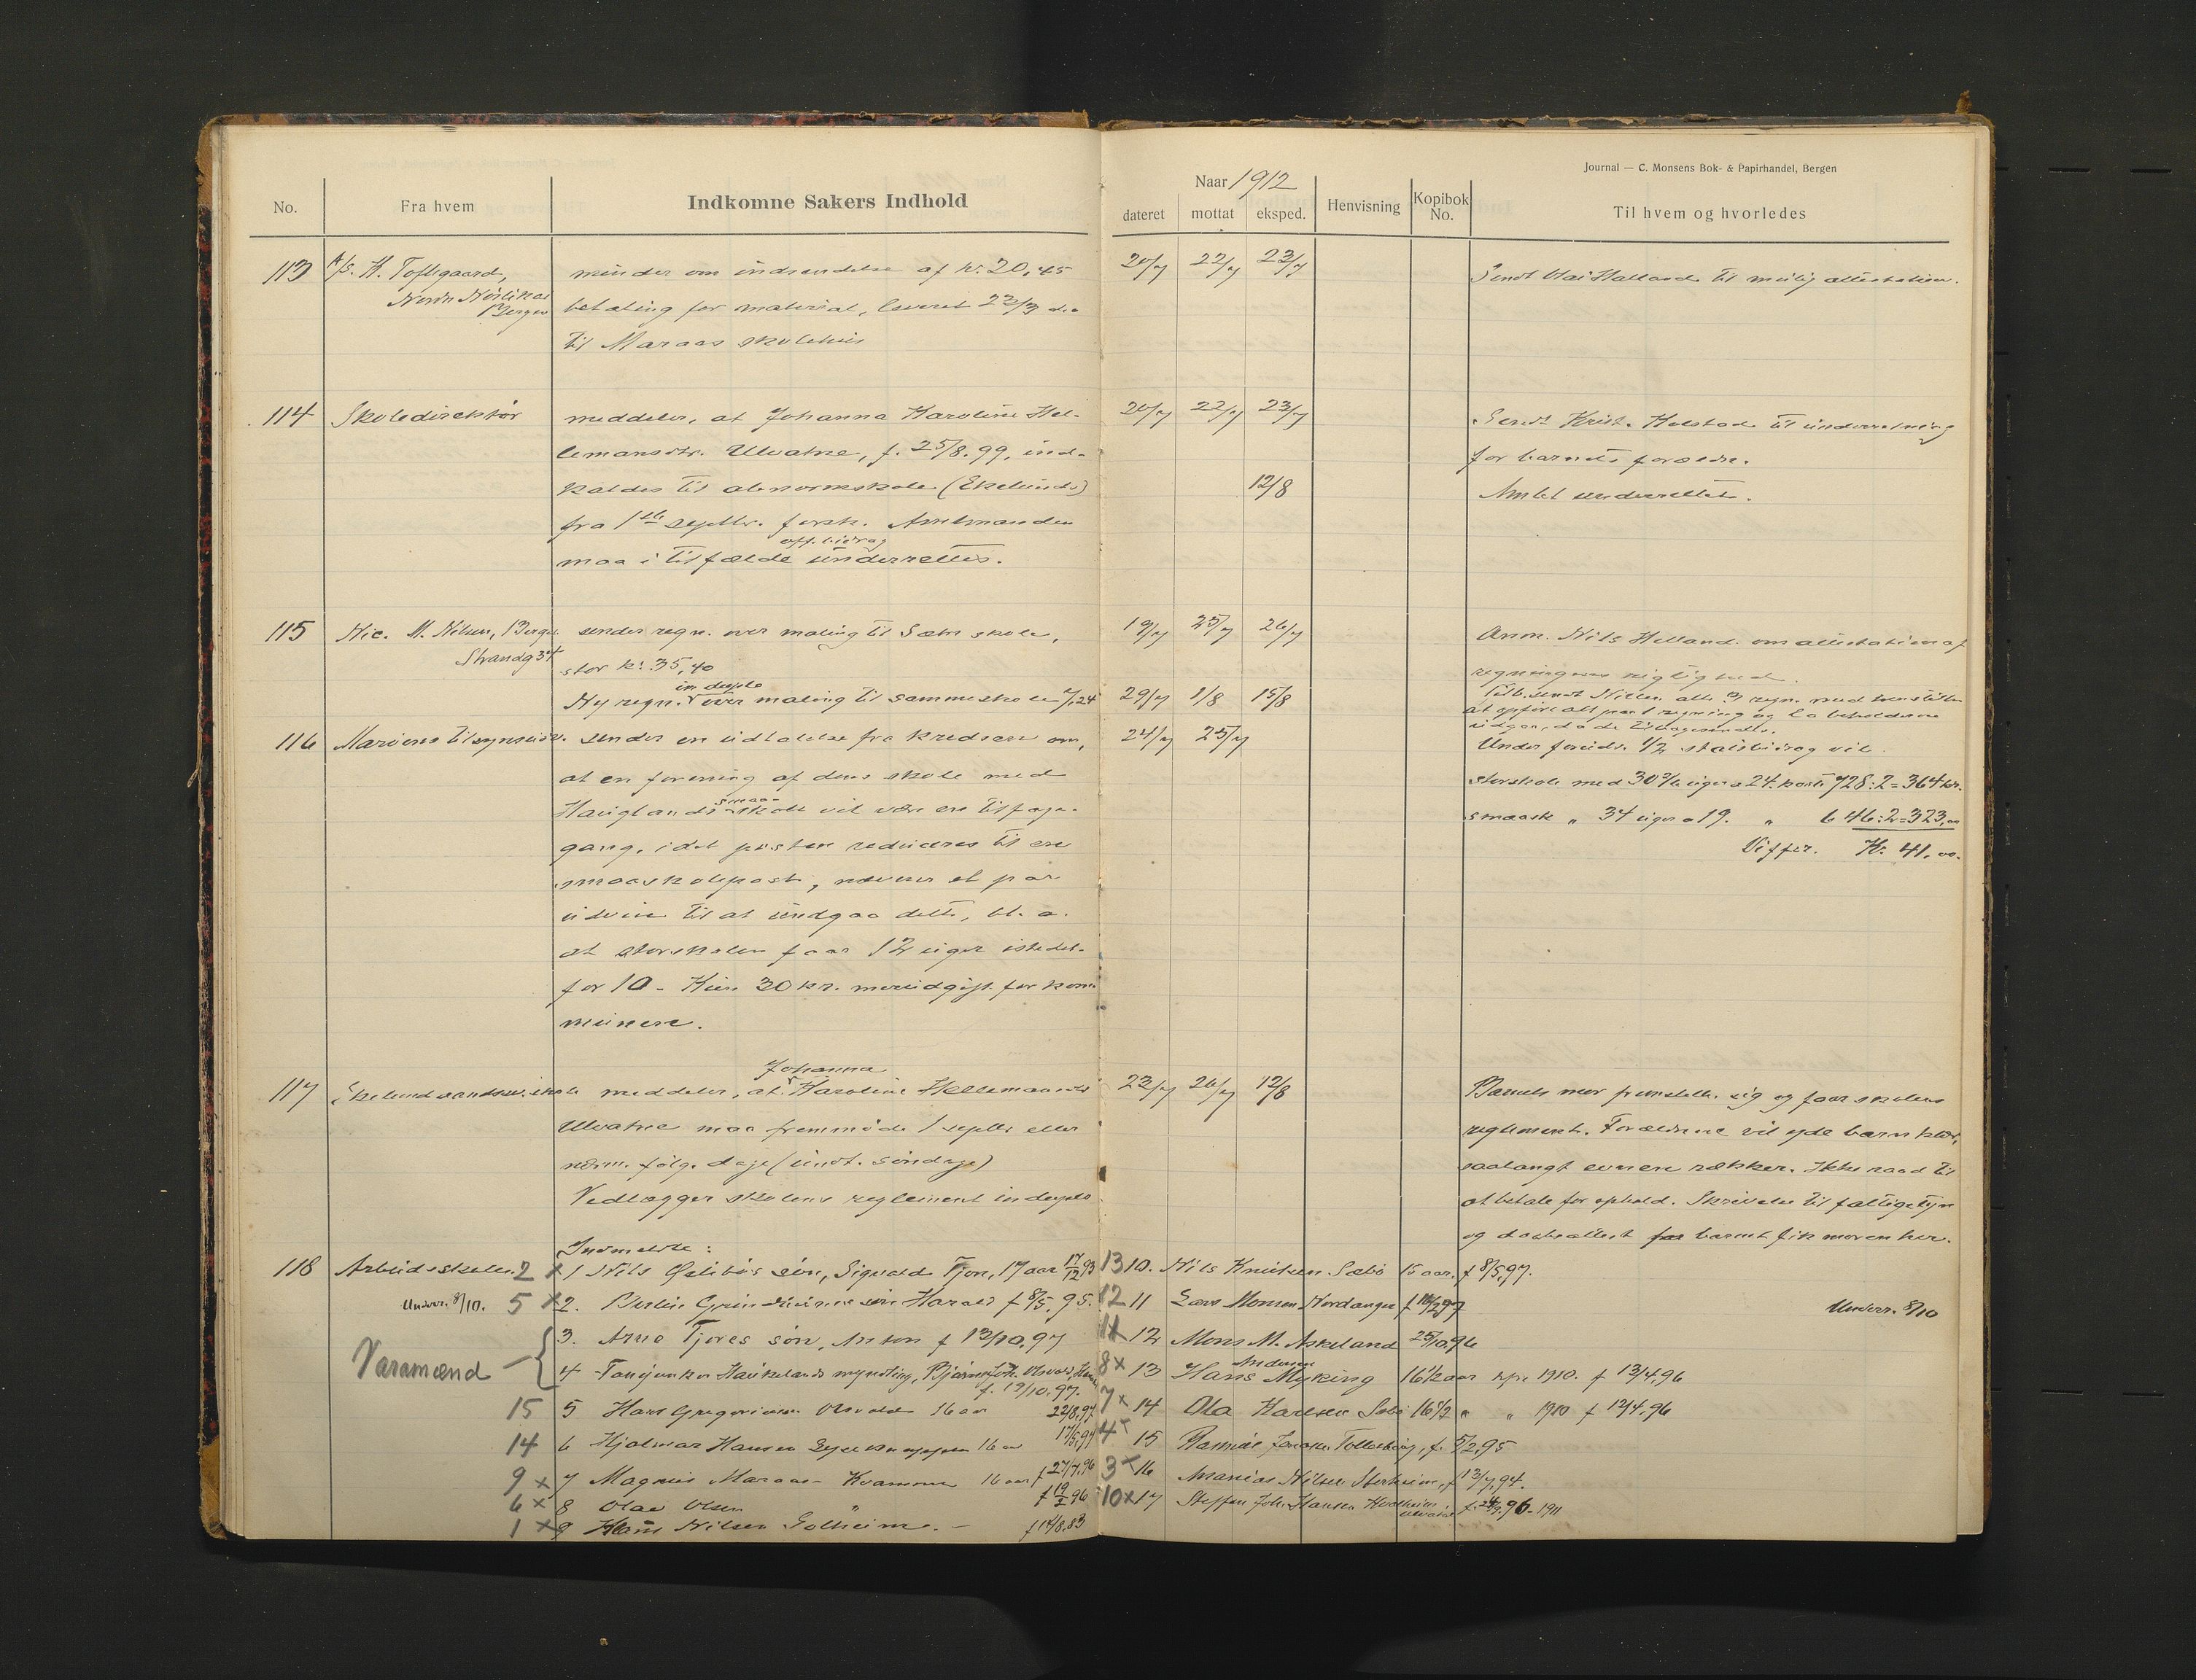 Journal — C. Monsens Bok- & Papirhandel, Bergen
No. Fra hvem Indkomne Sakers Indhold
Naar 1912
dateret mottat eksped. Henvisning Kopibok No. Til hvem og hvorledes
113 A/S. H. Toftegaard, minder om indsendelse af kr. 20,45 20/7 22/7 23/7 Sendt Olai Halland til mulig attestation.
Bergen betaling for material, leveret 23/3 ds.
til Maraas skolehus
114 Skoledirektør meddeler, at Johanna Karoline Hel- 20/7 22/7 23/7 Sendt Krist. Holstad til underretning
lemansdtr. Ulvatne, f. 25/8. 99, ind- for barnets forældre.
kaldes til abnormskole (Ekelund) 12/8 Amtet underrettet.
fra 1ste septbr. førstk. Amtmanden
off. bidrag
maa i tilfælde underrettes.
115 Nic. M. Nilsen, Bergen sender regn. over maling til Sæbø skole, 19/7 25/7 26/7 Anm. Nils Helland om attestation af
Strandg 34 stor kr. 35,40 regningens rigtighed.
in duplo
Ny regn. over maling til samme skole 7,24 29/7 1/8 15/8
at opføre alt paa 1 regning og la beholderne
116 sender en udtalelse fra kredsen om, 24/7 25/7 Under foruds. 1/2 statsbidrag vil
at en forening af dens skole med storskole med 30 uger a 24. koste 728:2=364 kr.
smaa-
Hauglands skole vil være en tilbage- smaask " 34 uger a 19. " 646:2=323,00
gang, idet posten reduceres til en Differ. Kr. 41,00.
smaaskolepost, nævner et par
udveie til at undgaa dette, bl. a.
at storskolen faar 12 uger istedet-
for 10 - Kun 30 kr. merudgift for kom-
munen.
Johanna
117 Ekelund aandssv. skole meddeler, at Karoline Hellemansdtr 23/7 26/7 12/8 Barnets mor fremstill. sig og faar skolens
Ulvatne maa fremmøde 1 septbr eller reglement. Forældrene vil yde barn klær,
nærm. følg. dage (undt. søndage) saalangt evnene rækker. Ikke raad til
Vedlægger skolens reglement in duplo at betale for ophold. Skrivelse til fattigstyr
og daabsattest for barnet fik moren her.
Indmeldte:
118 Arbeidsskolen. 2 x 1 Nils søn, Sigvald Tjore, 17 aar 17/12 93 13 10. Nils Knutsen Sæbø 15 aar. f 8/5,97.
Underr. 8/10. 5 x 2. søn Harald f 8/5, 95. 12 11 Lars Monsen Hordanger Underr. 8/10
3. Arne Tjores søn, Anton f 13/10,97 11 12 Mons M. Askeland 25/10,96
Varamænd 4 Haukelands myndling, 8 x 13 Hans Andersen Myking 16 1/2 aar 1910. f 13/4,96
f. 19/10.97.
15 5 Hans Gregoriussen 16 aar 22/8,97 7 x 14 Ola Karlsen Sæbø 16 1/2 " " 1910 f 12/4,96
14 6 Hjalmar Hansen 16 aar 17/5,97 4 x 15 Rasmus f. 5/2,95
9 x 7 Magnus Maraas - Kvamme 16 aar f 27/7,96 3 x 16 Ananias Nilsen f 13/7,94.
6 x 8 Olav Olsen " f 19/1 96 10 x 17 Steffen Joh. Hansen 96 - 1911
1 x 9 Hans Nilsen Solheim. - f 14/8.83